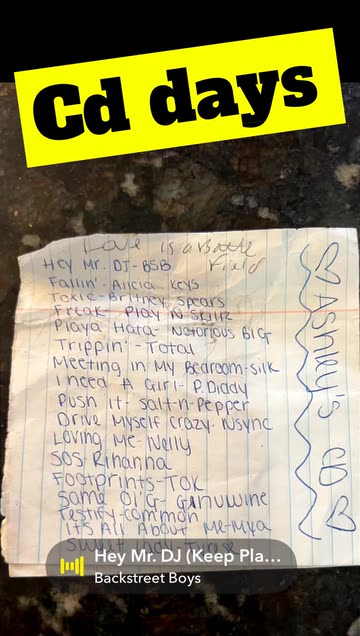 Cd days
Love is a Battle
Field
Hey Mr. DJ-BSB
Fallin'-Alicia keys
Toxic-Britney Spears
Freak-Play N Skillz
Playa Hata-Notorious BIG
Trippin'-Total
Meeting in My Bedroom-Silk
I need A Girl-P.Diddy
Push it-Salt-n-Pepper
Drive Myself Crazy-Nsync
Loving Me-Nelly
SOS-Rihanna
Footprints-TOK
Same Ol'G-Ginuwine
Testify-common
It's All About Me-Mya
Sweet Lady-Tyrese
♡Ashley's CD♡
Hey Mr. DJ (Keep Pla...
Backstreet Boys